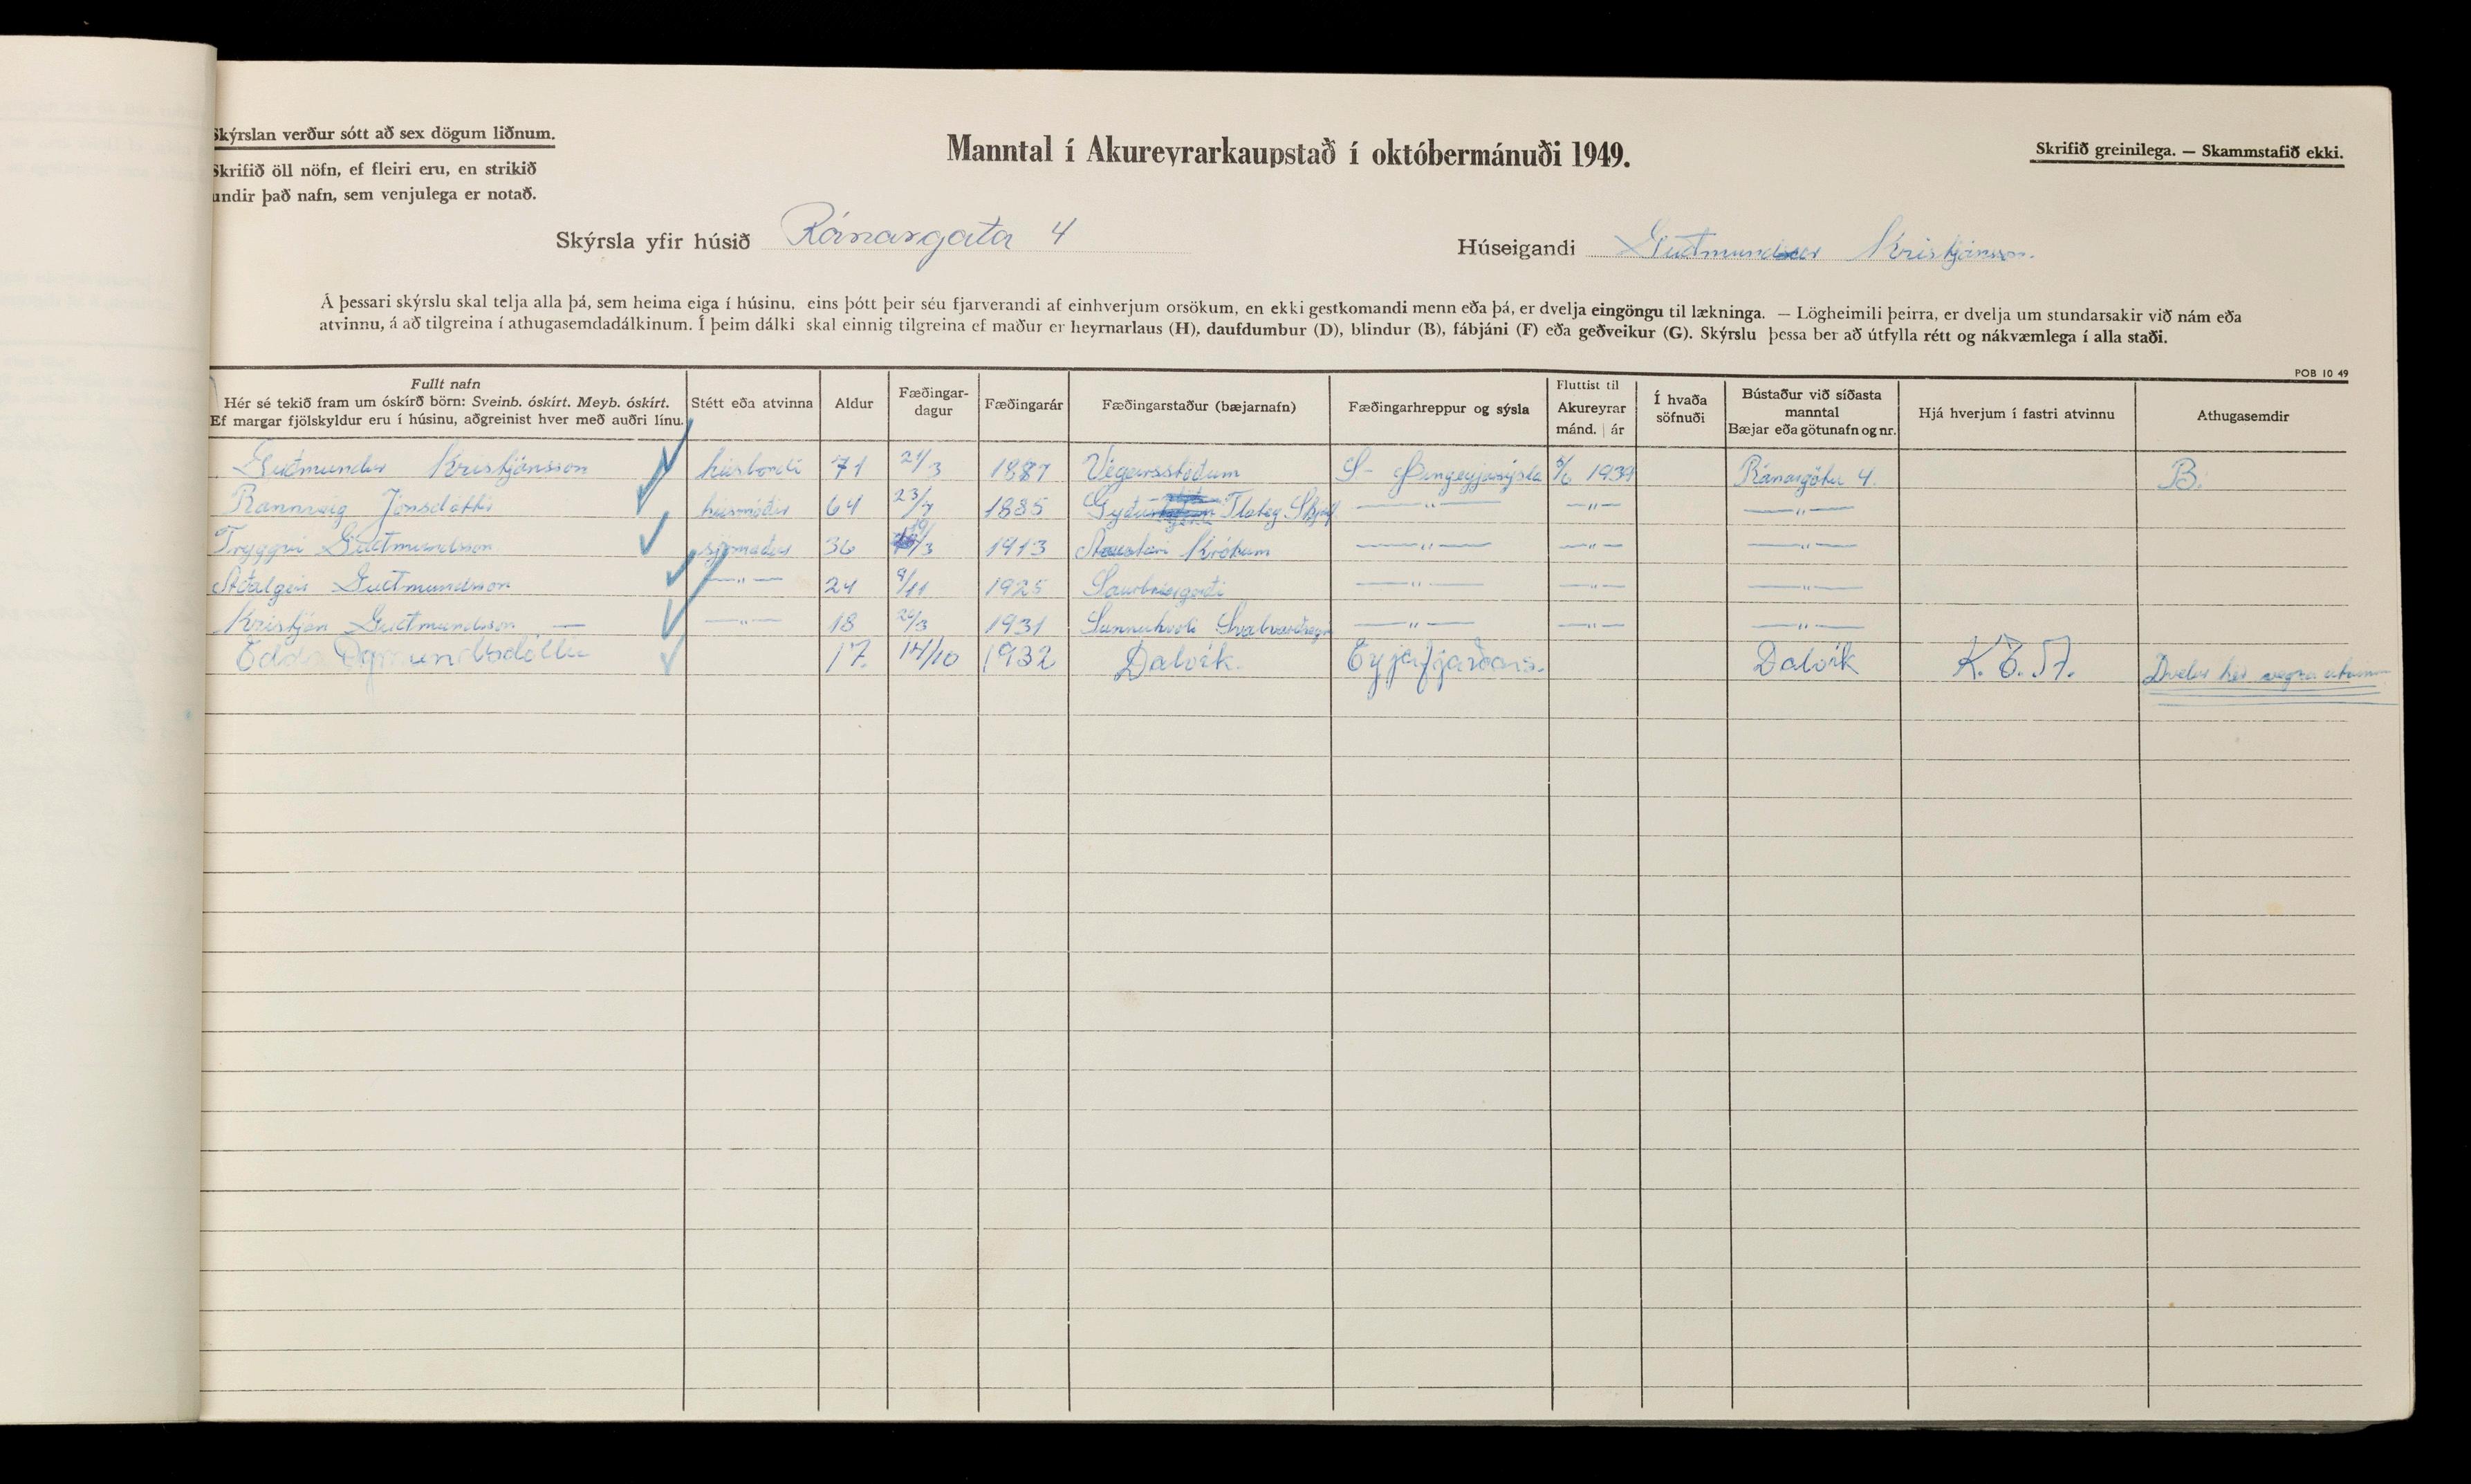 Skýrslan verður sótt að sex dögum liðnum.
Skrifið öll nöfn, ef fleiri eru, en strikið
undir það nafn, sem venjulega er notað.
Manntal í Akureyrarkaupstað í októbermánuði 1949.
Skrifið greinilega. — Skammstafið ekki.
Skýrsla yfir húsið Ránargata 4
Húseigandi Guðmundur Kristjánsson.
Á þessari skýrslu skal telja alla þá, sem heima eiga í húsinu, eins þótt þeir séu fjarverandi af einhverjum orsökum, en ekki gestkomandi menn eða þá, er dvelja eingöngu til lækninga. — Lögheimili þeirra, er dvelja um stundarsakir við nám eða
atvinnu, á að tilgreina í athugasemdadálkinum. Í þeim dálki skal einnig tilgreina ef maður er heyrnarlaus (H), daufdumbur (D), blindur (B), fábjáni (F) eða geðveikur (G). Skýrslu þessa ber að útfylla rétt og nákvæmlega í alla staði.
POB 10 49
Fullt nafn
Hér sé tekið fram um óskírð börn: Sveinb. óskírt. Meyb. óskírt.
Ef margar fjölskyldur eru í húsinu, aðgreinist hver með auðri línu.
Stétt eða atvinna
Aldur
Fæðingar-
dagur
Fæðingarár
Fæðingarstaður (bæjarnafn)
Fæðingarhreppur og sýsla
Fluttist til
Akureyrar
mánd. | ár
Í hvaða
söfnuði
Bústaður við síðasta
manntal
Bæjar eða götunafn og nr.
Hjá hverjum í fastri atvinnu
Athugasemdir
Guðmundur Kristjánsson húsbondi 71 21/3 1887 Végeirsstöðum S-Þingeyjasýsla 5/6 1939 Ránargötu 4. B.
Rannveig Jónsdóttir húsmóðir 64 23/7 1885 Flatey Skjálf —"— —"— —"—
Tryggvi Guðmundsson sjómaður 36 19/3 1913 Austari Krókum —"— —"— —"—
Aðalgeir Guðmundsson —"— 24 9/11 1925 Saurbrúargerði —"— —"— —"—
Kristján Guðmundsson — —"— 18 20/3 1931 Sunnuhvoli Svalbarðseyri —"— —"— —"—
Edda Ögmundsdóttir 17. 14/10 1932 Dalvík. Eyjafjarðars. Dalvík K.E.A. Dvelur hér vegna atvinnu